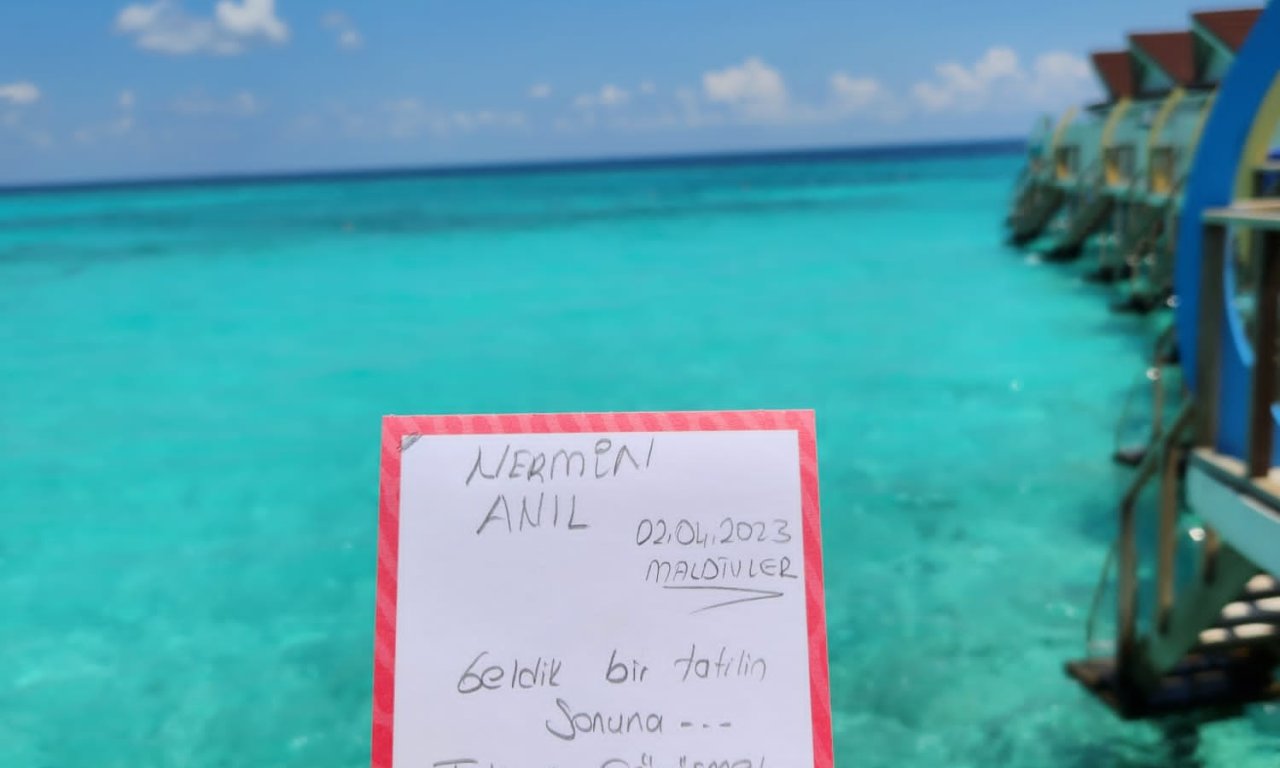 NERMİN
ANIL
02.04.2023
MALDİVLER
Geldik bir tatilin
Sonuna ---